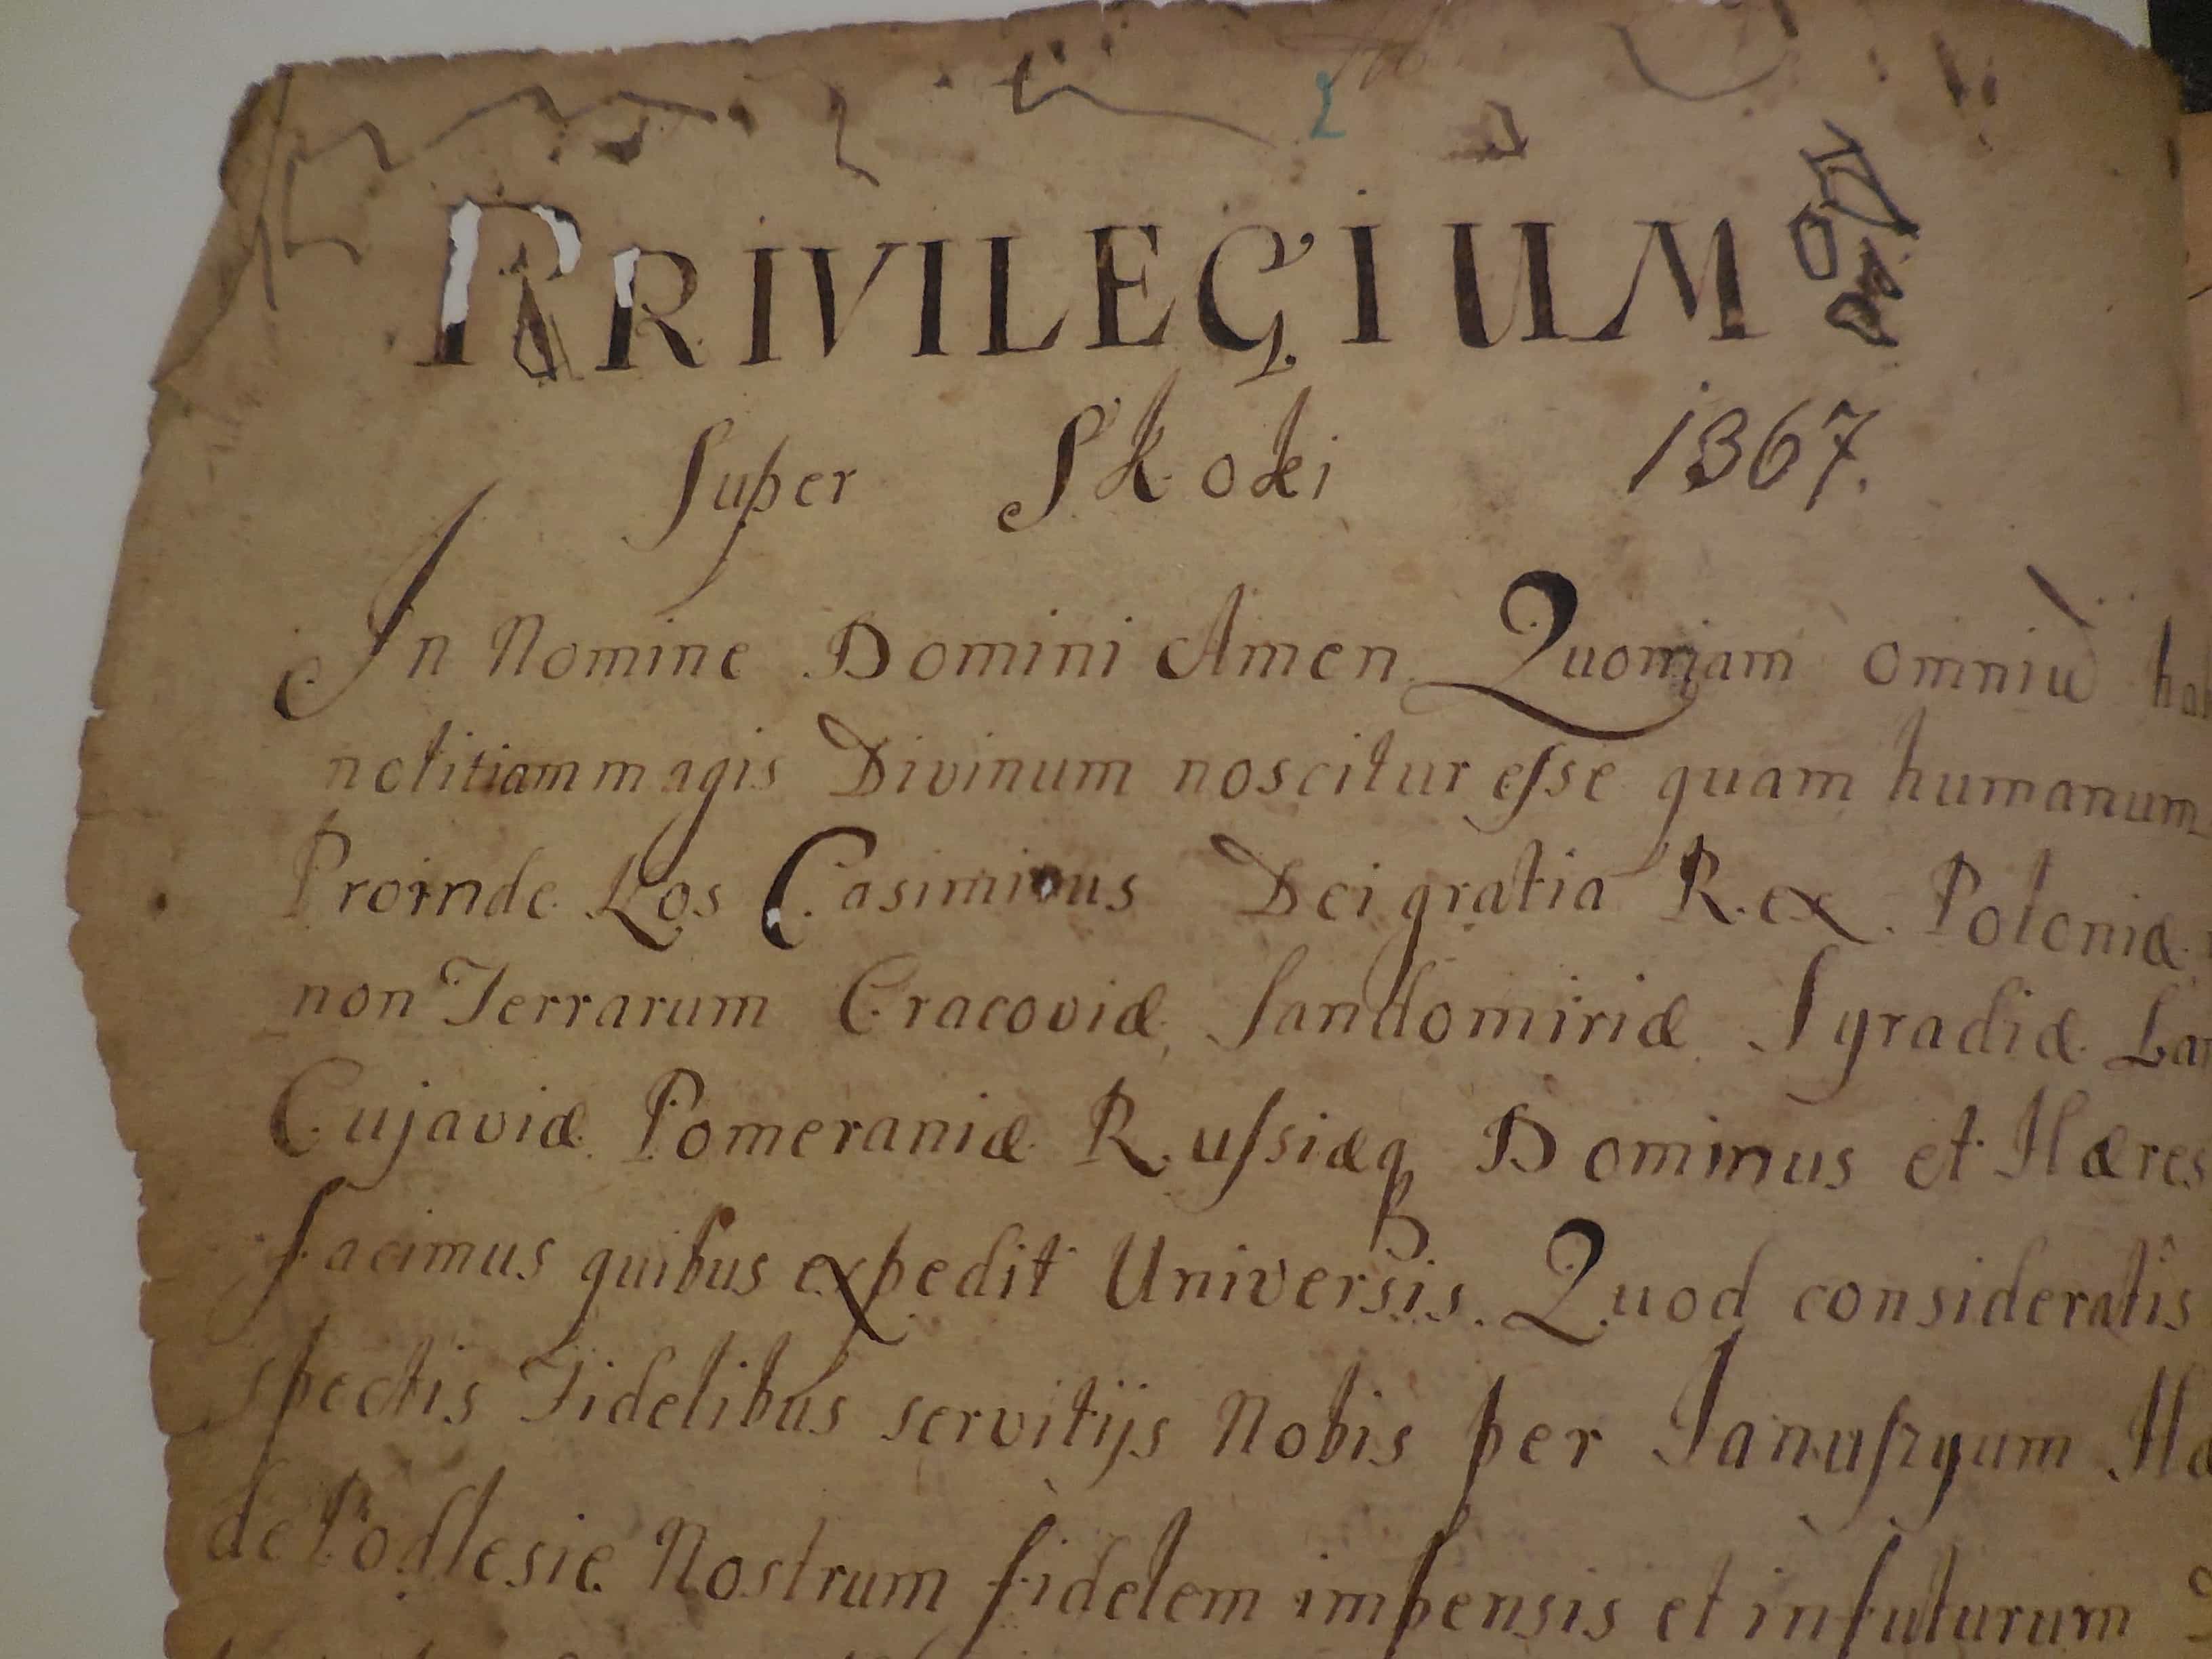 PRIVILEGIUM
Super Skoki 1367.
In Nomine Domini Amen. Quoniam omniū
notitiam magis Divinum noscitur eſse quam humanum
Proinde Nos Casimirus Dei gratia Rex. Poloniæ
non Terrarum Cracoviæ, Sandomiriæ, Syradiæ
Cujaviæ. Pomeraniæ. Ruſsiæq Dominus et Hæres
facimus quibus expedit Universis. Quod consideratis
spectis Fidelibus servitijs Nobis per Januſzyum
de Podlesie Nostrum fidelem impensis et in futurum